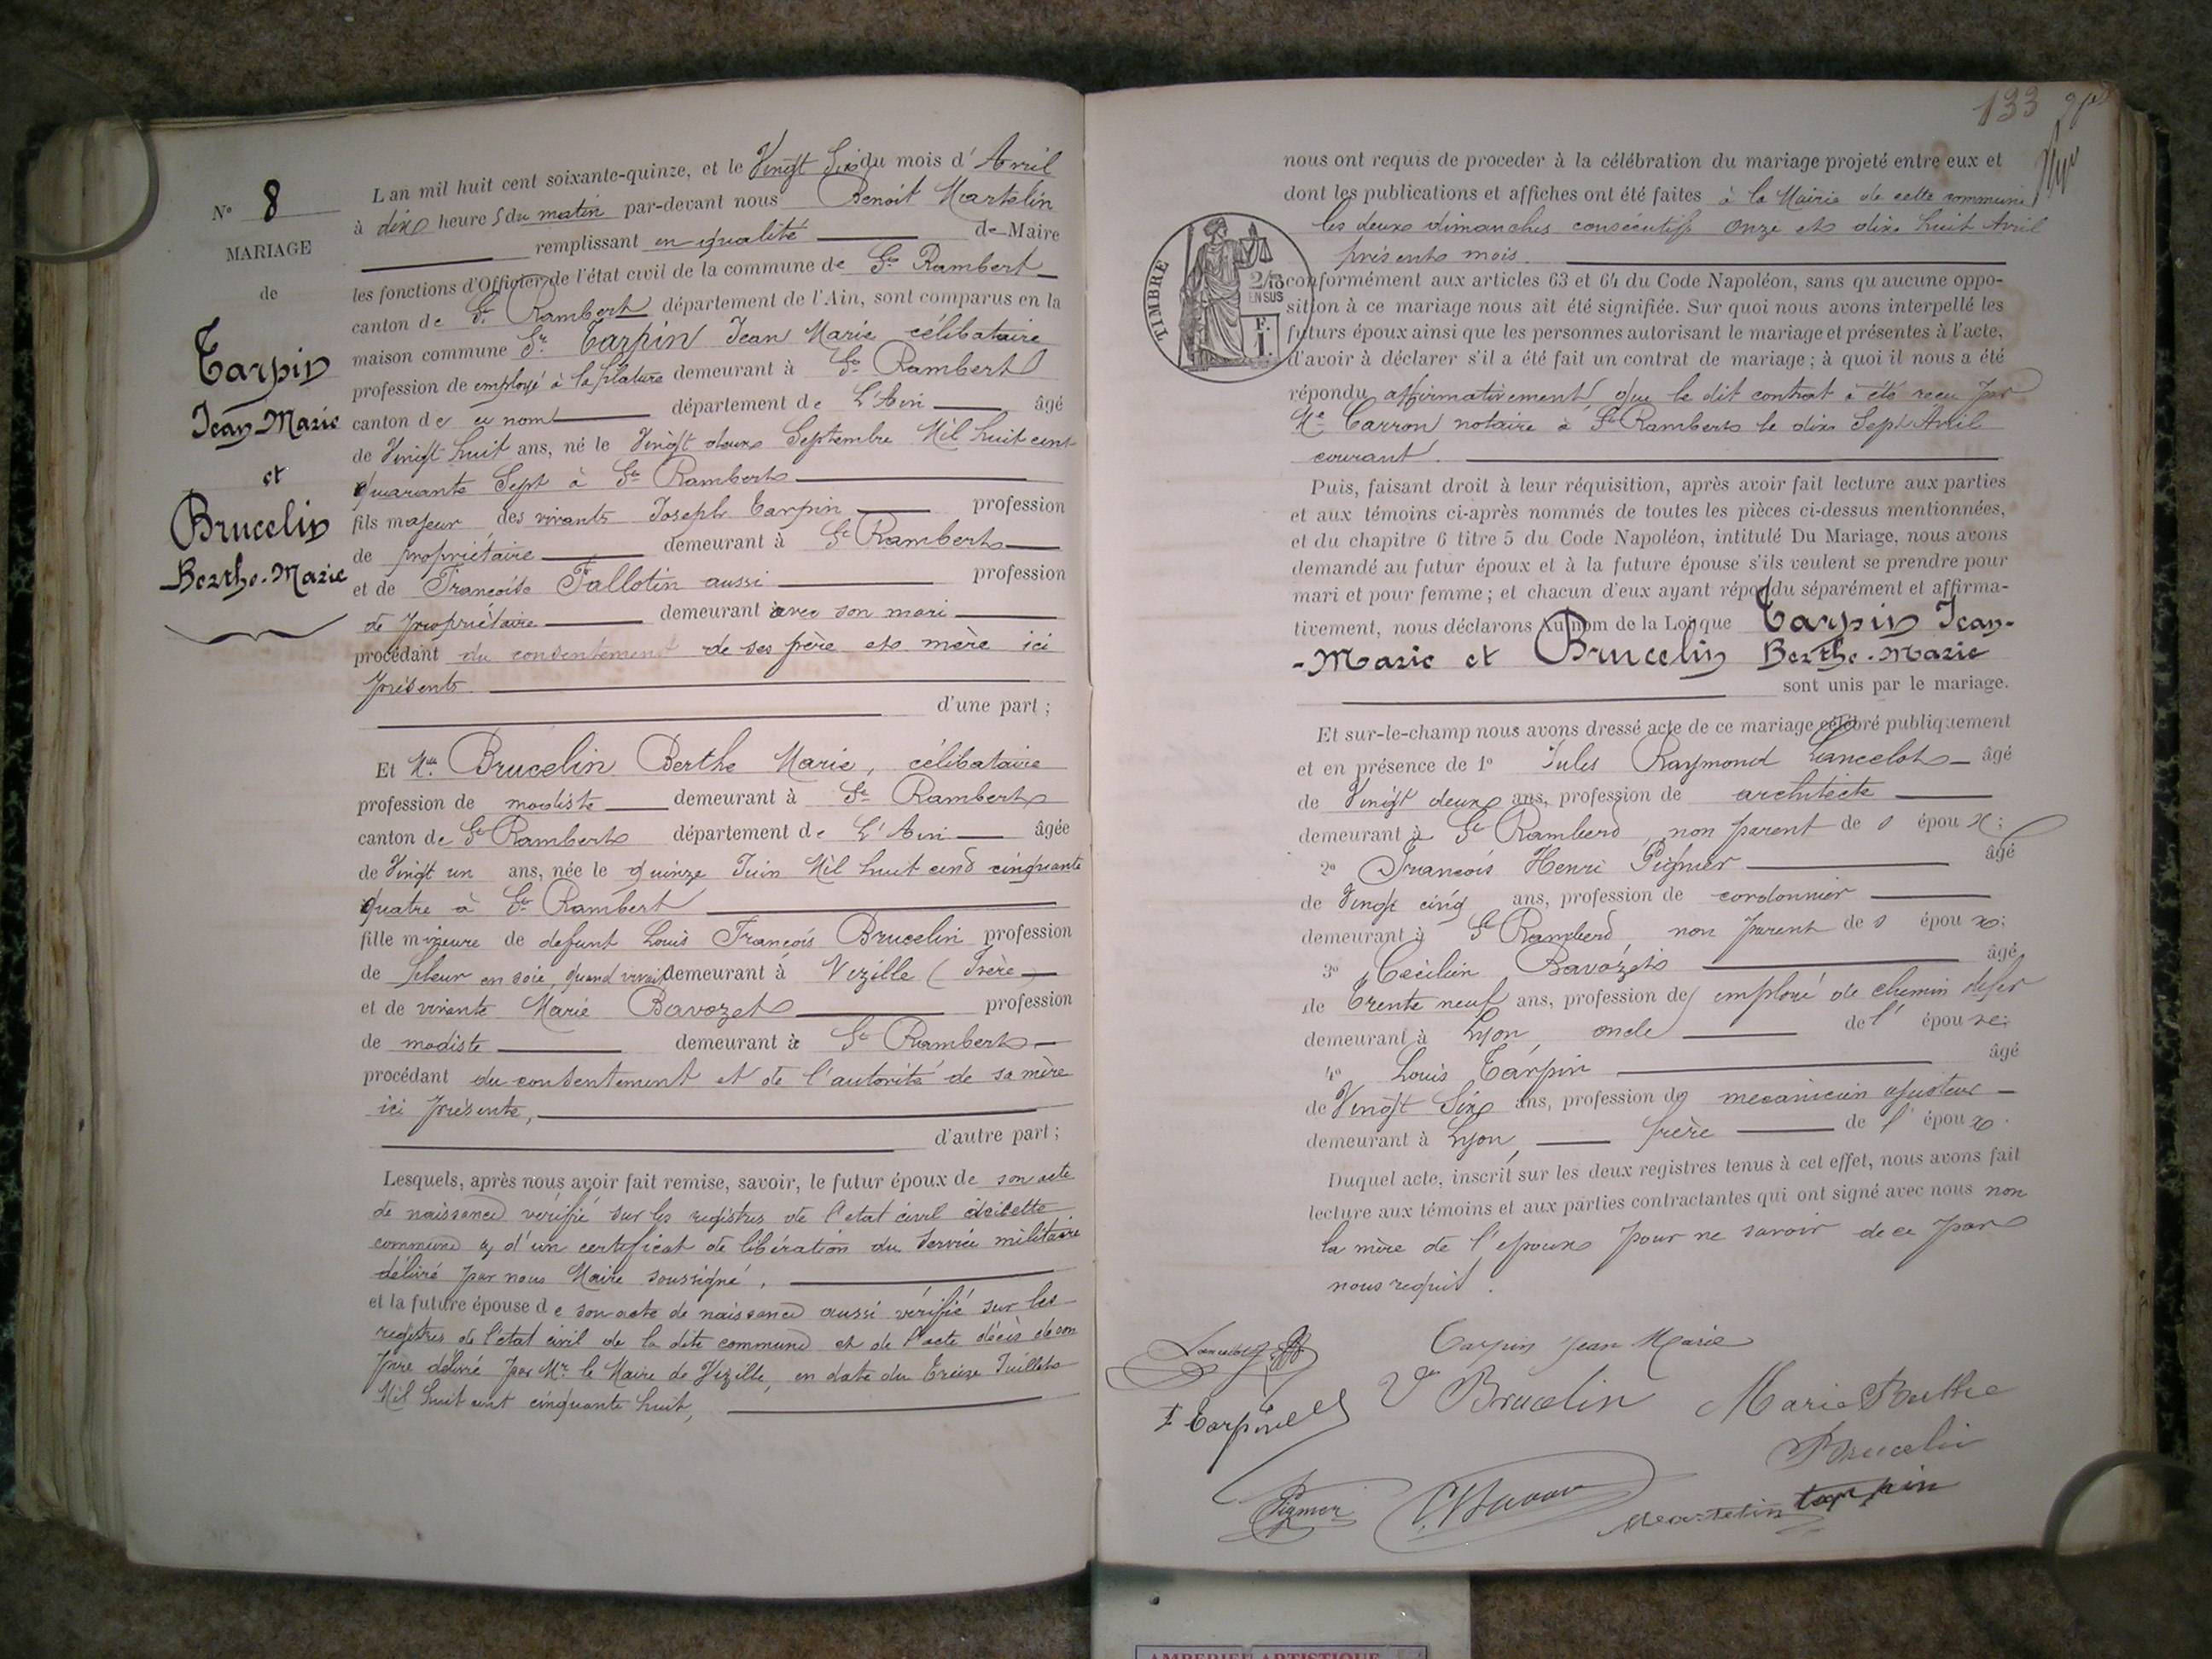 N° 8
MARIAGE
de
Tarpin
Jean-Marie
et
Brucelin
Berthe-Marie
L'an mil huit cent soixante-quinze, et le Vingt Six du mois d'Avril
à dix heures du matin par-devant nous Benoit Martelin
remplissant en qualité de Maire
les fonctions d'Officier de l'état civil de la commune de St Rambert
canton de St Rambert département de l'Ain, sont comparus en la
maison commune Sr Tarpin Jean Marie célibataire
profession de employé à la filature demeurant à St Rambert
canton de ce nom département de L'Ain âgé
de Vingt huit ans, né le Vingt deux Septembre Mil huit cent
quarante Sept à St Rambert
fils majeur des vivants Joseph Tarpin profession
de propriétaire demeurant à St Rambert
et de Françoise Fallotin aussi profession
de propriétaire demeurant avec son mari
procédant du consentement de ses père et mère ici
présents
d'une part ;
Et Mlle Brucelin Berthe Marie, célibataire
profession de modiste demeurant à St Rambert
canton de St Rambert département de L'Ain âgée
de Vingt un ans, née le quinze Juin Mil huit cent cinquante
quatre à St Rambert
fille mineure de defunt Louis François Brucelin profession
de fileur en soie, quand vivait demeurant à Vizille (Isère
et de vivante Marie Bavozet profession
de modiste demeurant à St Rambert
procédant du consentement et de l'autorité de sa mère
ici présente,
d'autre part ;
Lesquels, après nous avoir fait remise, savoir, le futur époux de son acte
de naissance vérifié sur les registres de l'etat civil de cette
commune et d'un certificat de libération du service militaire
délivré par nous Maire soussigné.
et la future épouse de son acte de naissance aussi vérifié sur les
registres de l'etat civil de la dite commune et de l'acte décès de son
père délivré par Mr le Maire de Vizille, en date du Treize Juillet
Mil huit cent cinquante huit,
133
nous ont requis de proceder à la célébration du mariage projeté entre eux et
dont les publications et affiches ont été faites à la Mairie de cette commune
les deux dimanches consécutifs onze et dix huit Avril
présent mois.
TIMBRE
2/10
EN SUS
F.
1.
conformément aux articles 63 et 64 du Code Napoléon, sans qu'aucune oppo-
sition à ce mariage nous ait été signifiée. Sur quoi nous avons interpellé les
futurs époux ainsi que les personnes autorisant le mariage et présentes à l'acte,
d'avoir à déclarer s'il a été fait un contrat de mariage ; à quoi il nous a été
répondu affirmativement que le dit contrat a été reçu par
Me Carron notaire à St Rambert le dix Sept Avril
courant.
Puis, faisant droit à leur réquisition, après avoir fait lecture aux parties
et aux témoins ci-après nommés de toutes les pièces ci-dessus mentionnées,
et du chapitre 6 titre 5 du Code Napoléon, intitulé Du Mariage, nous avons
demandé au futur époux et à la future épouse s'ils veulent se prendre pour
mari et pour femme ; et chacun d'eux ayant répondu séparément et affirma-
tivement, nous déclarons Au nom de la Loi que Tarpin Jean-
-Marie et Brucelin Berthe-Marie
sont unis par le mariage.
Et sur-le-champ nous avons dressé acte de ce mariage célébré publiquement
et en présence de 1° Jules Raymond Lancelot âgé
de Vingt deux ans, profession de architecte
demeurant à St Rambert, non parent des époux ;
2° François Henri Pignier âgé
de Vingt cinq ans, profession de cordonnier
demeurant à St Rambert, non parent des époux ;
3° Cécilien Bavozet âgé
de Trente neuf ans, profession de employé de chemin de fer
demeurant à Lyon, oncle de l'épouse ;
4° Louis Tarpin âgé
de Vingt Six ans, profession de mecanicien ajusteur
demeurant à Lyon, frère de l'époux.
Duquel acte, inscrit sur les deux registres tenus à cet effet, nous avons fait
lecture aux témoins et aux parties contractantes qui ont signé avec nous non
la mère de l'epoux pour ne savoir de ce par
nous requis.
Lancelot Tarpin Jean Marie
L Tarpin Ve Brucelin Marie Berthe
Brucelin
Pignier Martelin tarpin
AMBERIEU ARTISTIQUE